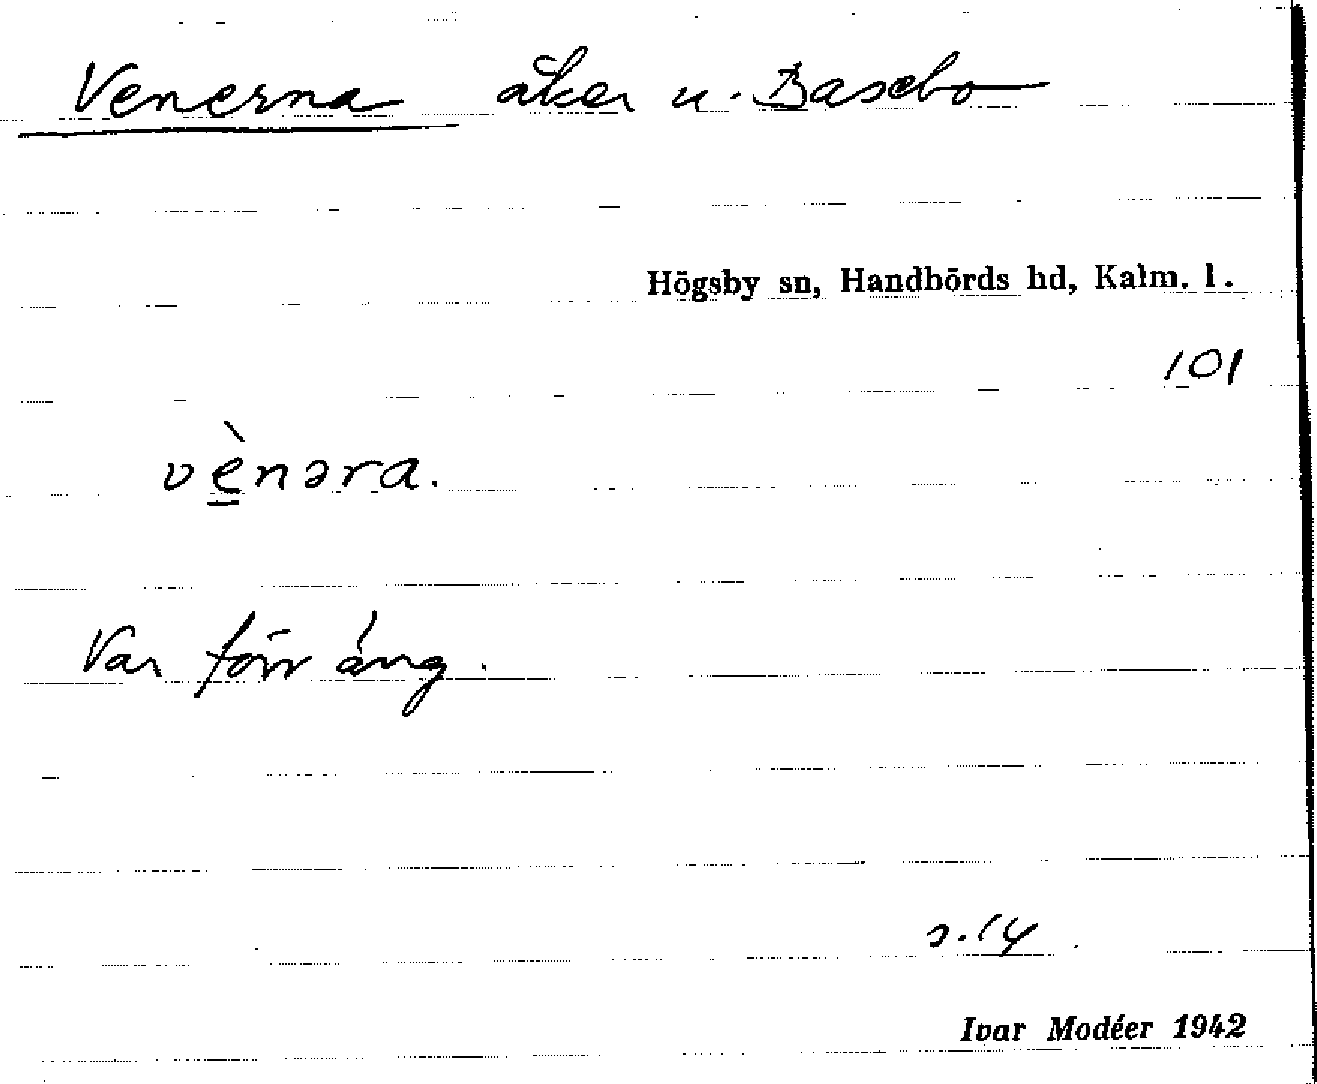 Venerna åker u. Basebo
Högsby sn, Handbörds hd, Kalm. l.
101
vènəra.
Var förr äng.
s. 14
Ivar Modéer 1942